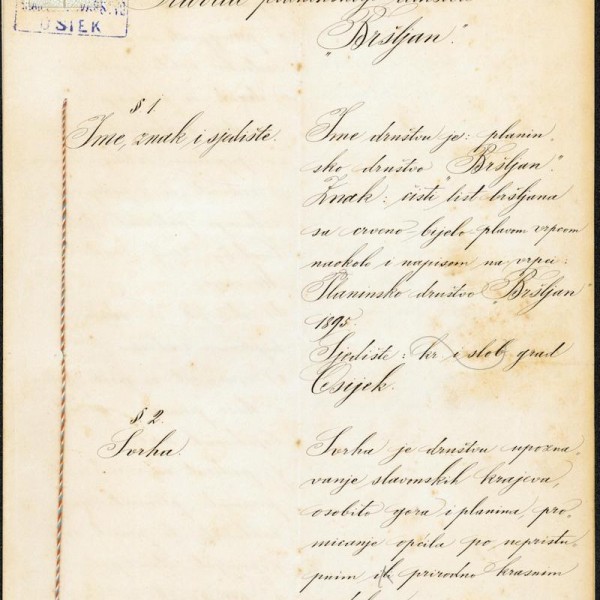 OSIEK
Pravila planinskoga društva
"Bršljan".
§ 1
Ime, znak i sjedište.
Ime društvu je: planin-
sko društvo "Bršljan".
Znak: čisti list bršljana
sa crveno-bijelo plavom vrpcom
naokolo i napisom na vrpci:
Planinsko društvo "Bršljan"
1895.
Sjedište: kr. i slob. grad
Osijek.
§ 2
Svrha.
Svrha je društvu upozna-
vanje slavonskih krajeva,
osobito gora i planina, pro-
micanje općila po nepristu-
pnim ili prirodno krasnim